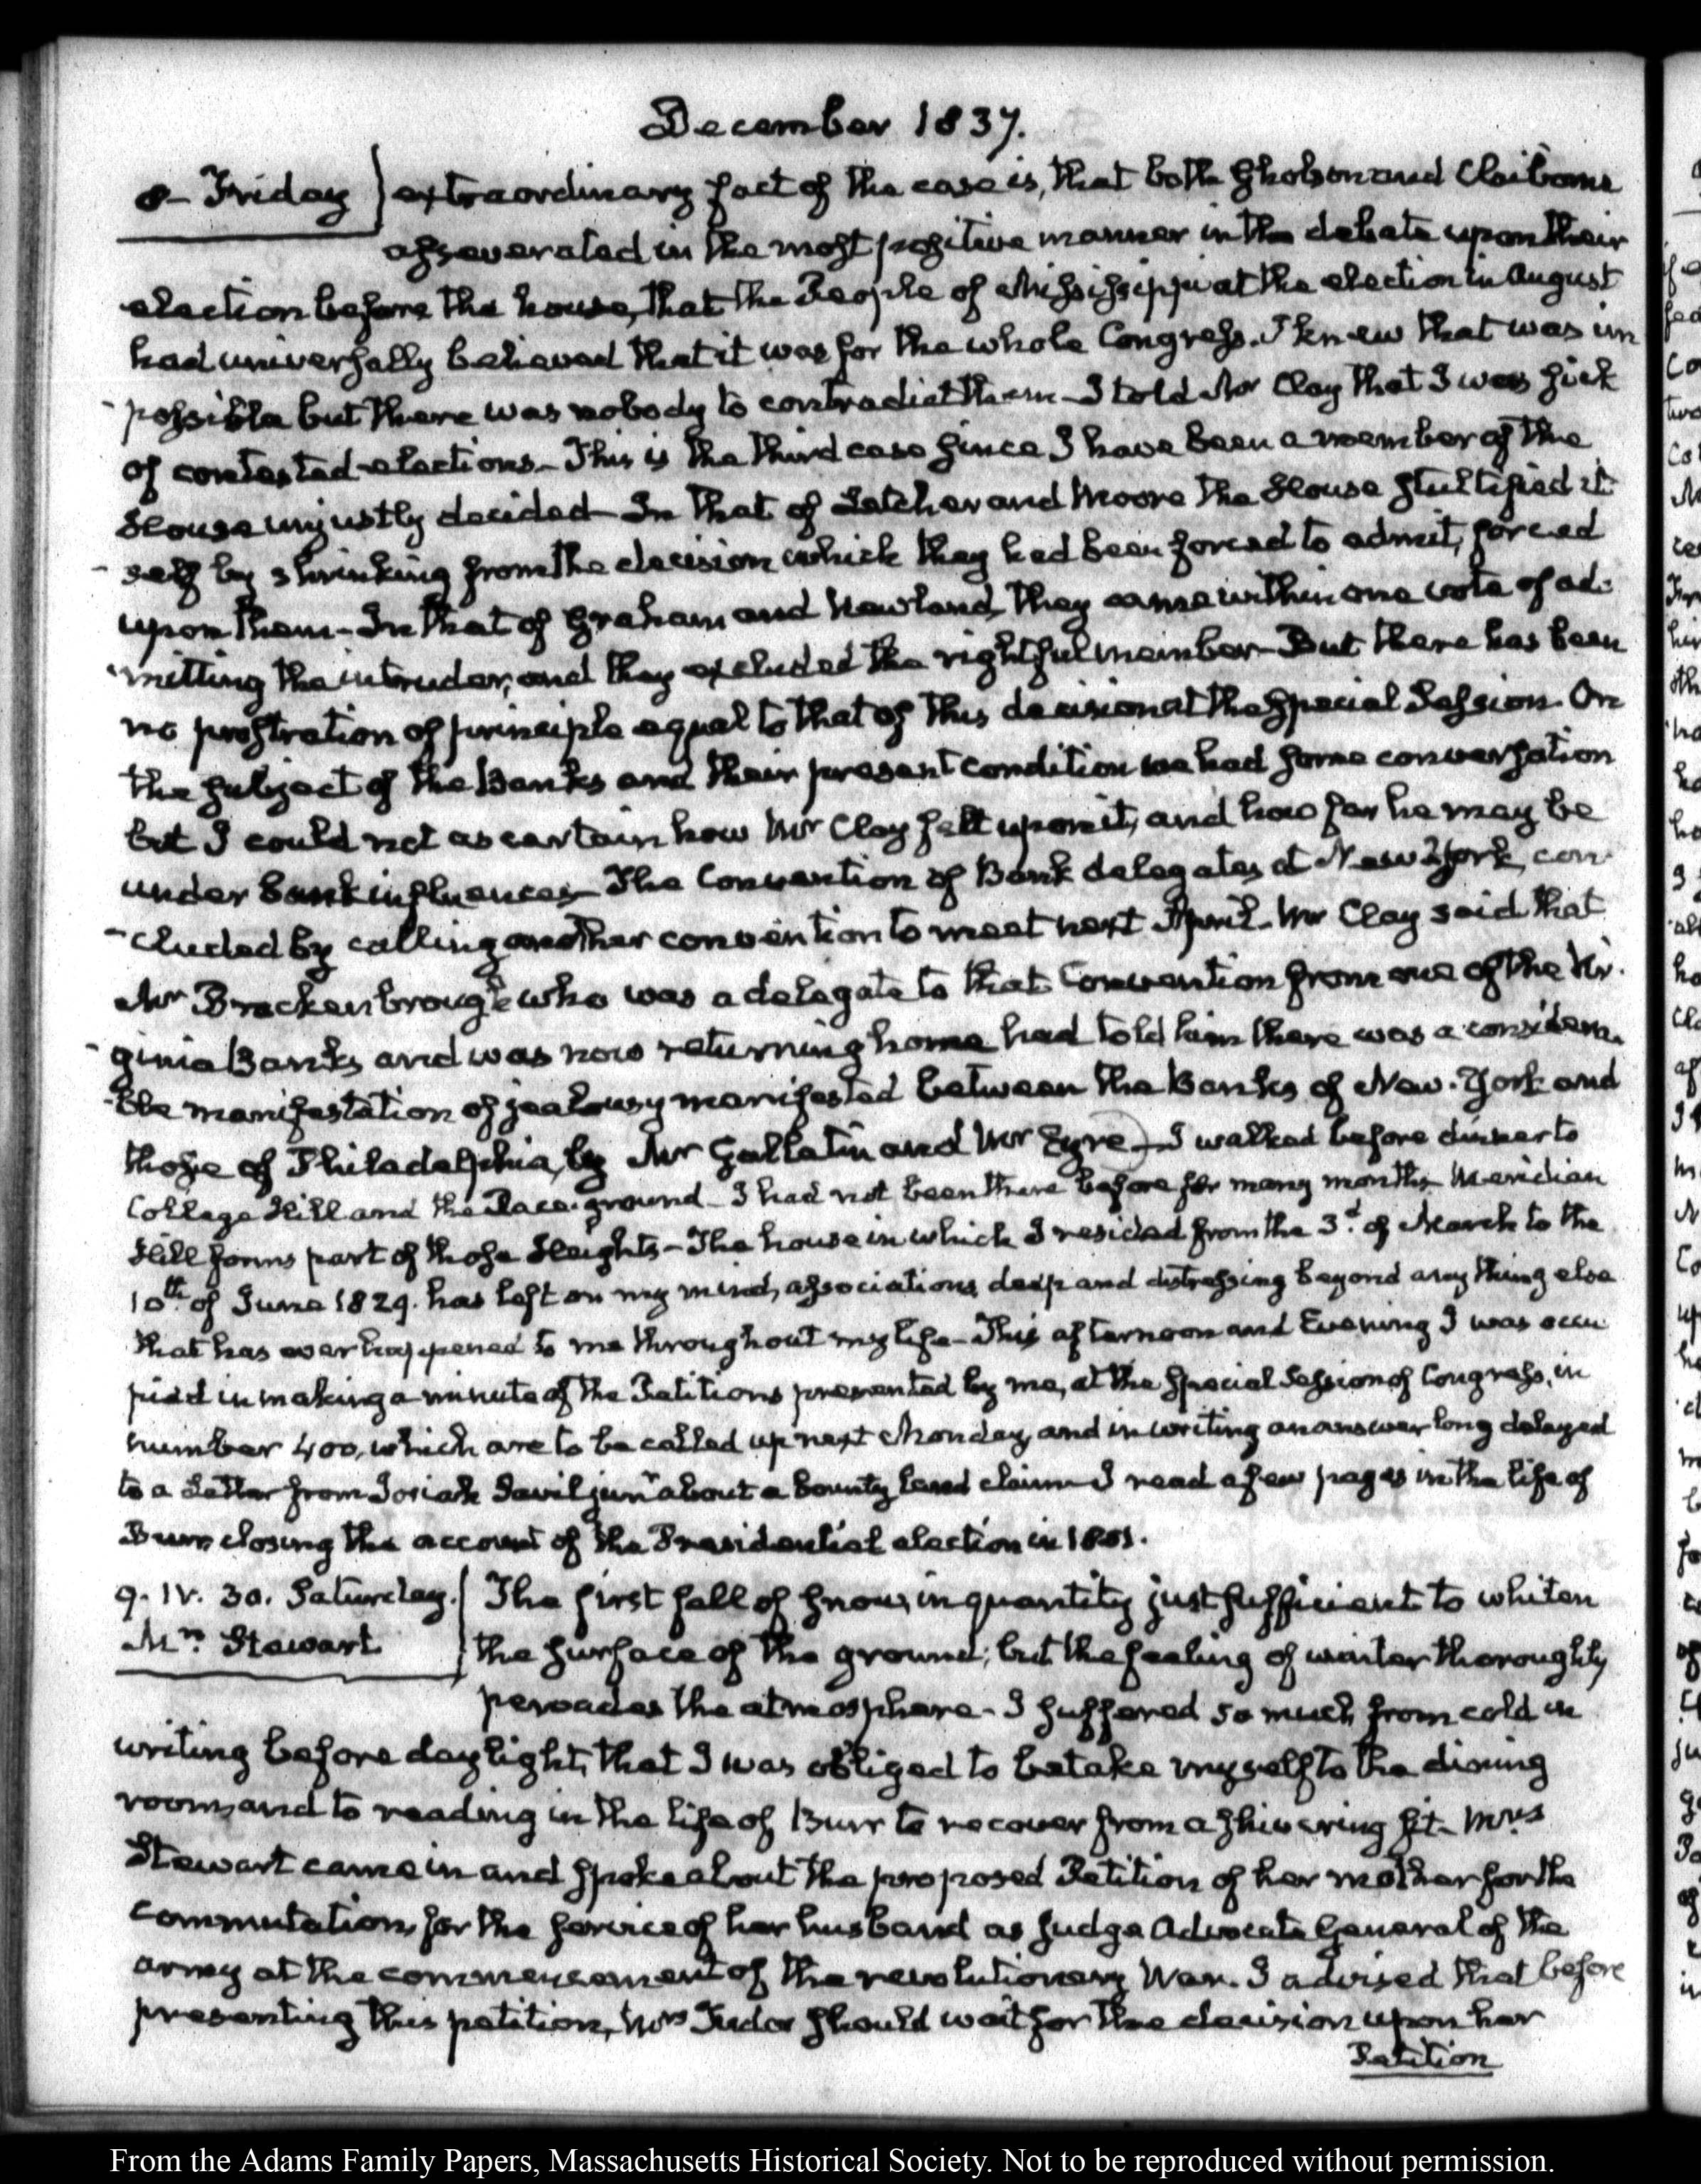 December 1837.
8- Friday } extraordinary fact of the case is, that both Gholson and Claiborne
asseverated in the most positive manner in the debate upon their
election before the house, that the People of Mississippi at the election in August
had universally believed that it was for the whole Congress. I knew that was im
-possible but there was nobody to contradict them_ I told Mr Clay that I was sick
of contested elections_ This is the third case since I have been a member of the
House unjustly decided_ In that of Letcher and Moore the House stultified it
-self by shrinking from the decision which they had been forced to admit, forced
upon them_ In that of Graham and Newland, they came within one vote of ad-
-mitting the intruder, and they excluded the rightful member_ But there has been
no prostration of principle equal to that of this decision at the Special Session. On
the subject of the Banks and their present condition we had some conversation
but I could not ascertain how Mr Clay felt upon it, and how far he may be
under bank influences_ The Convention of Bank delegates at New York, con
-cluded by calling another convention to meet next April_ Mr Clay said that
Mr Brockenbrough who was a delegate to that Convention from one of the Vir-
-ginia Banks and was now returning home had told him there was a considera-
-ble manifestation of jealousy manifested between the Banks of New-York and
those of Philadelphia, by Mr Gallatin and Mr Eyre_ I walked before dinner to
College Hill and the Race-ground_ I had not been there before for many months. Meridian
Hill forms part of those Heights_ The house in which I resided from the 3d. of March to the
10th. of June 1829. has left on my mind, associations deep and distressing beyond any thing else
that has ever happened to me throughout my life_ This afternoon and Evening I was occu
pied in making a minute of the Petitions presented by me, at the Special Session of Congress, in
number 400, which are to be called up next Monday, and in writing an answer long delayed
to a Letter from Josiah Savil junr about a bounty land claim_ I read a few pages in the life of
Burr closing the account of the Presidential election in 1801.
9. IV. 30. Saturday. } The first fall of snow, in quantity just sufficient to whiten
Mrs Stewart } the surface of the ground; but the feeling of winter thoroughly
pervades the atmosphere_ I suffered so much from cold in
writing before daylight, that I was obliged to betake myself to the dining
room, and to reading in the life of Burr to recover from a shivering fit_ Mrs
Stewart came in and spoke about the proposed Petition of her mother for the
commutation, for the service of her husband as Judge Advocate General of the
army at the commencement of the revolutionary War. I advised that before
presenting this petition, Mrs Tudor should wait for the decision upon her
Petition
From the Adams Family Papers, Massachusetts Historical Society. Not to be reproduced without permission.